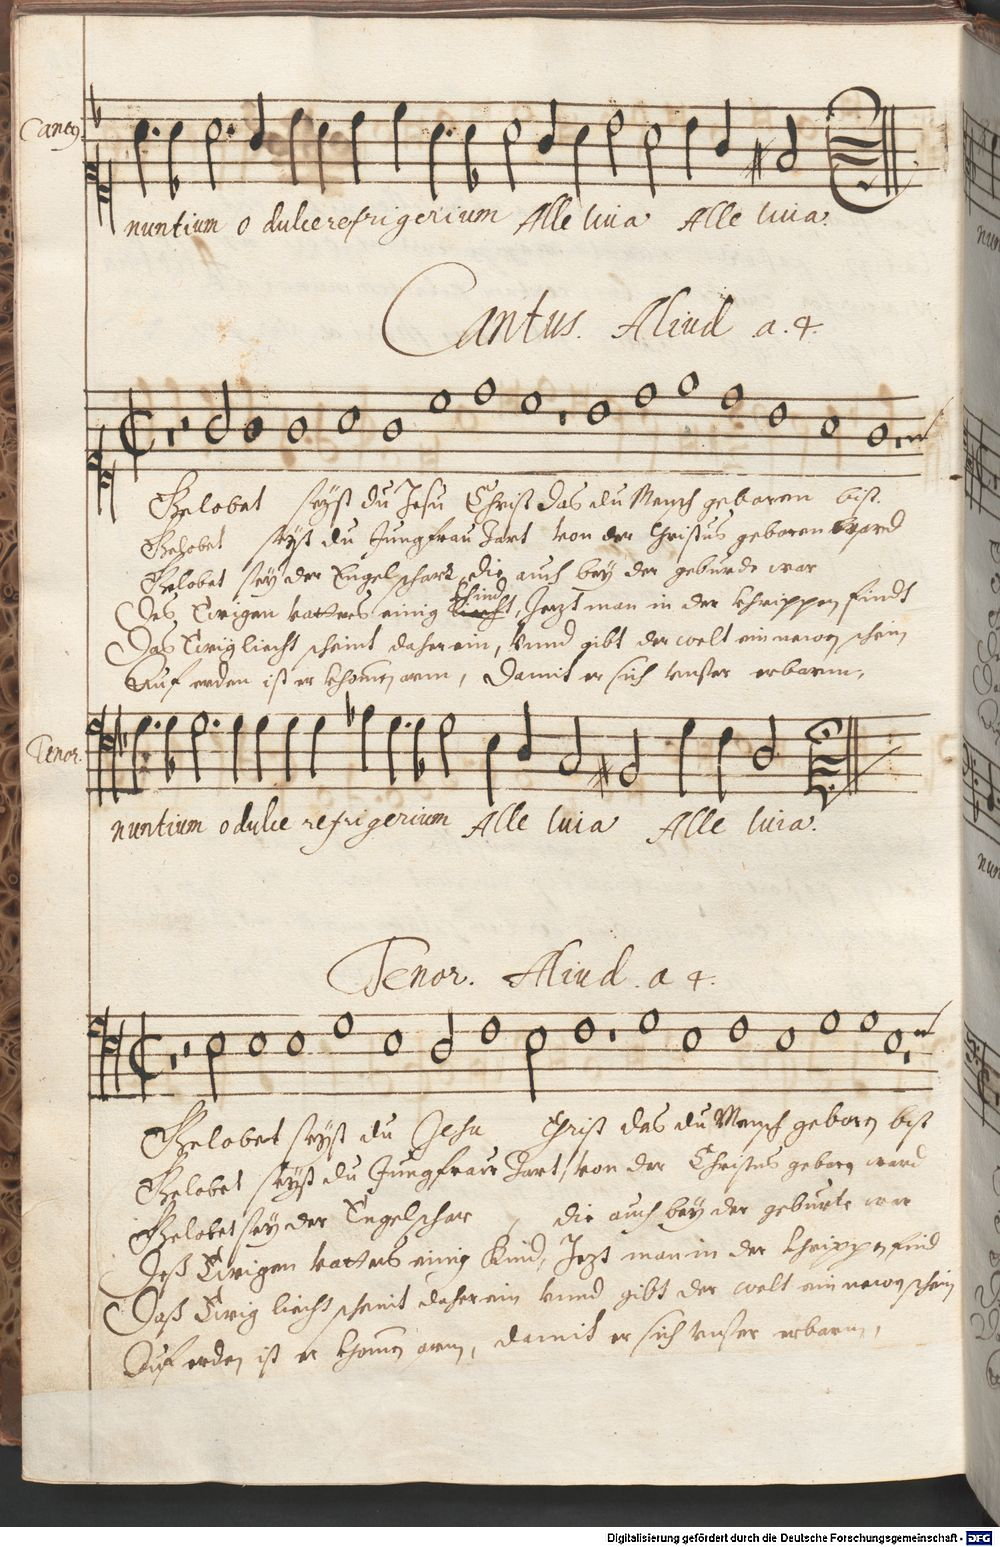 Cantus
nuntium o dulce refrigerium Alle luia Alle luia.
Cantus. Aliud a. 4.
Gelobet seÿst du Jesu Christ das du Mensch geboren bist.
Gelobet seÿst du Jungfrau Zart von der Christus geboren ward
Gelobet seÿ der Engel schar, die auch beÿ der geburde war
Des Ewigen vatters einig khind, Jezt man in der khrippen findt
Das Ewig liecht scheint daher ein, vnnd gibt der welt ein newen schein
Auf erden ist er khomen arm, damit er sich vnser erbarm,
Tenor.
nuntium o dulce refrigerium Alle luia Alle luia.
Tenor. Aliud. a 4.
Gelobet seÿst du Jesu Christ das du Mensch geborn bist
Gelobet seÿst du Jungfraw Zart, von der Christus geborn ward
Gelobet seÿ der Engel schar, die auch beÿ der geburte war
Deß Ewigen vatters einig Kind, Jezt man in der khrippen find
Daß Ewig liecht scheint daher ein vnnd gibt der welt ein newen schein
Auf erden ist er khomen arm, damit er sich vnser erbarm,
Digitalisierung gefördert durch die Deutsche Forschungsgemeinschaft - DFG